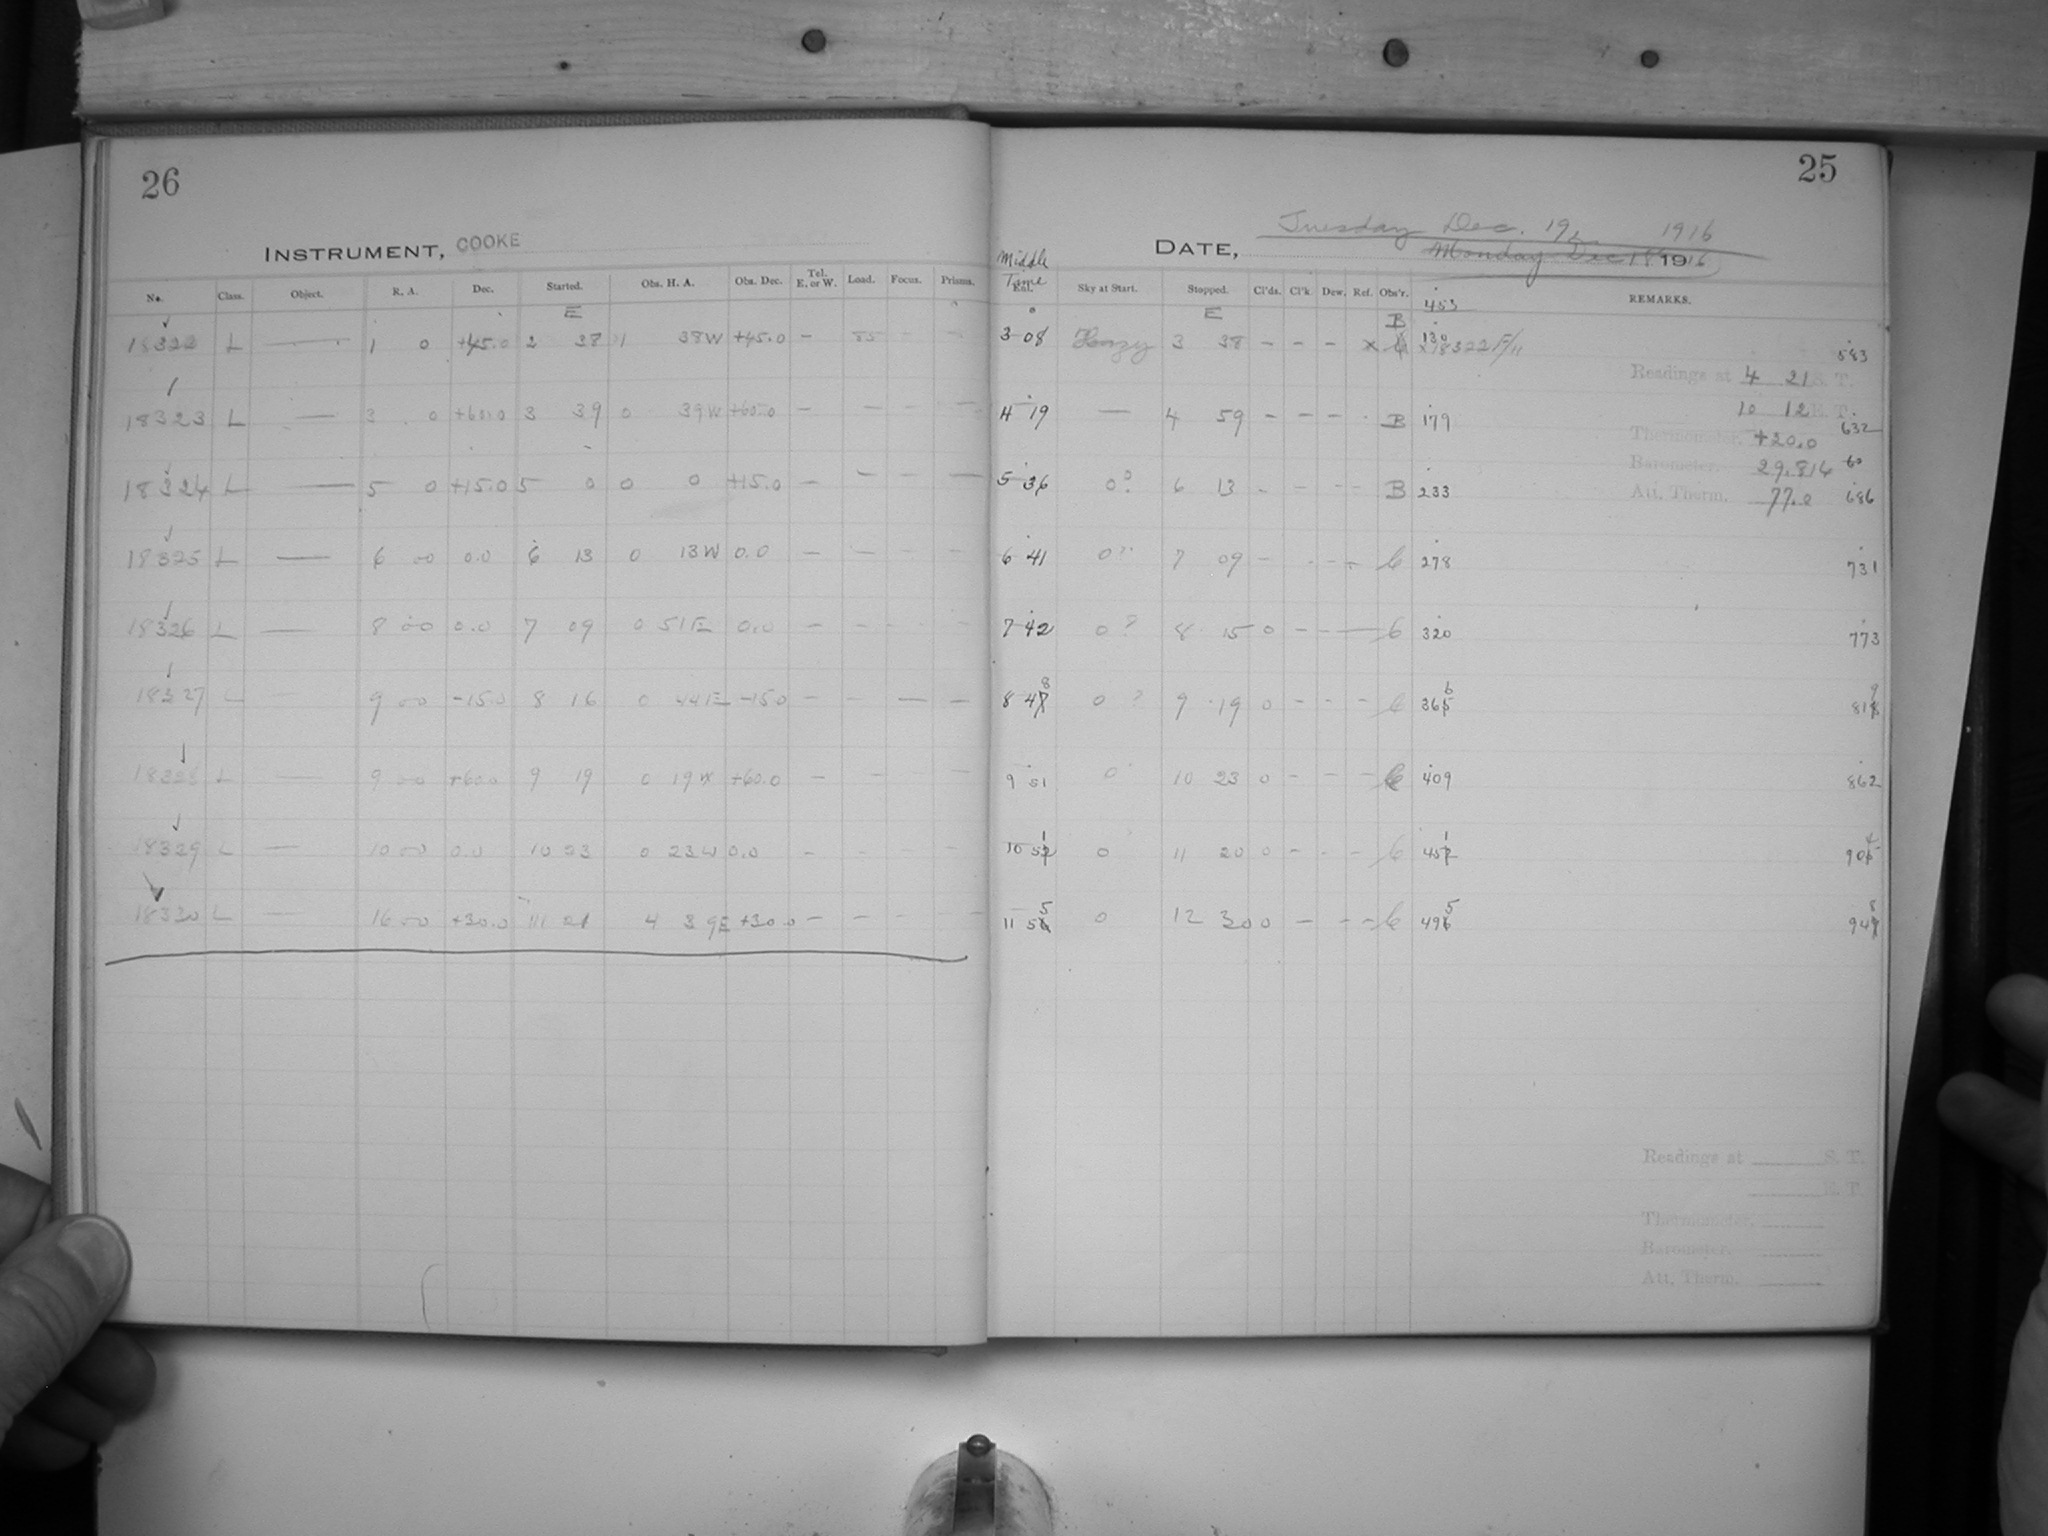 26
INSTRUMENT, COOKE
No. Class. Object. R. A. Dec. Started. Obs. H. A. Obs. Dec. Tel. E. or W. Load. Focus. Prisms.
E
18322 L — 1 0 +45.0 2 38 1 38W +45.0 — 85 — —
18323 L — 3 0 +60.0 3 39 0 39W +60.0 — — — —
18324 L — 5 0 +15.0 5 0 0 0 +15.0 — — — —
18325 L — 6 00 0.0 6 13 0 13W 0.0 — — — —
18326 L — 8 00 0.0 7 09 0 51E 0.0 — — — —
18327 L — 9 00 -15.0 8 16 0 44E -15.0 — — — —
18328 L — 9 00 +60.0 9 19 0 19W +60.0 — — —
18329 L — 10 00 0.0 10 23 0 23W 0.0 — — — —
18330 L — 16 00 +30.0 11 21 4 39E +30.0 — — — —
25
Tuesday Dec. 19, 1916
DATE, Monday Dec 18 1916
Middle Time
Ext. Sky at Start. Stopped. Cl'ds. Cl'k. Dew. Ref. Obs'r. REMARKS.
E 453
3 08 Hazy 3 38 — — — x B 130 x 18322 F/11 583
Readings at 4 21 S. T.
10 12 E. T.
4 19 — 4 59 — — — B 179 632
Thermometer, +20.0
Barometer, 29.814 60
5 36 0? 6 13 — — — — B 233 686
Att. Therm. 77.0
6 41 0? 7 09 — — — — 278 731
7 42 0 ? 8 15 0 — — — 320 773
8 48 0 ? 9 19 0 — — — 366 819
9 51 0 10 23 0 — — — 409 862
10 51 0 11 20 0 — — — 451 904
11 55 0 12 30 0 — — — 495 948
Readings at S. T.
E. T.
Thermometer,
Barometer.
Att. Therm.